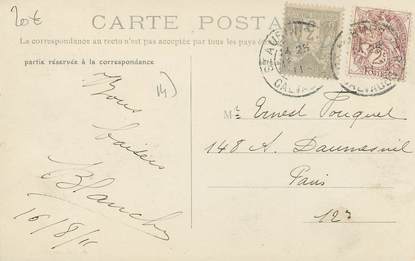 20€
CARTE POSTALE
La correspondance au recto n'est pas acceptée par tous les pays
partie réservée à la correspondance
Bons
baisers
Blanche
16/8/11
Mr Ernest Fouquet
148 A. Daumesnil
Paris
12e
CALVADOS
CALVADOS
2